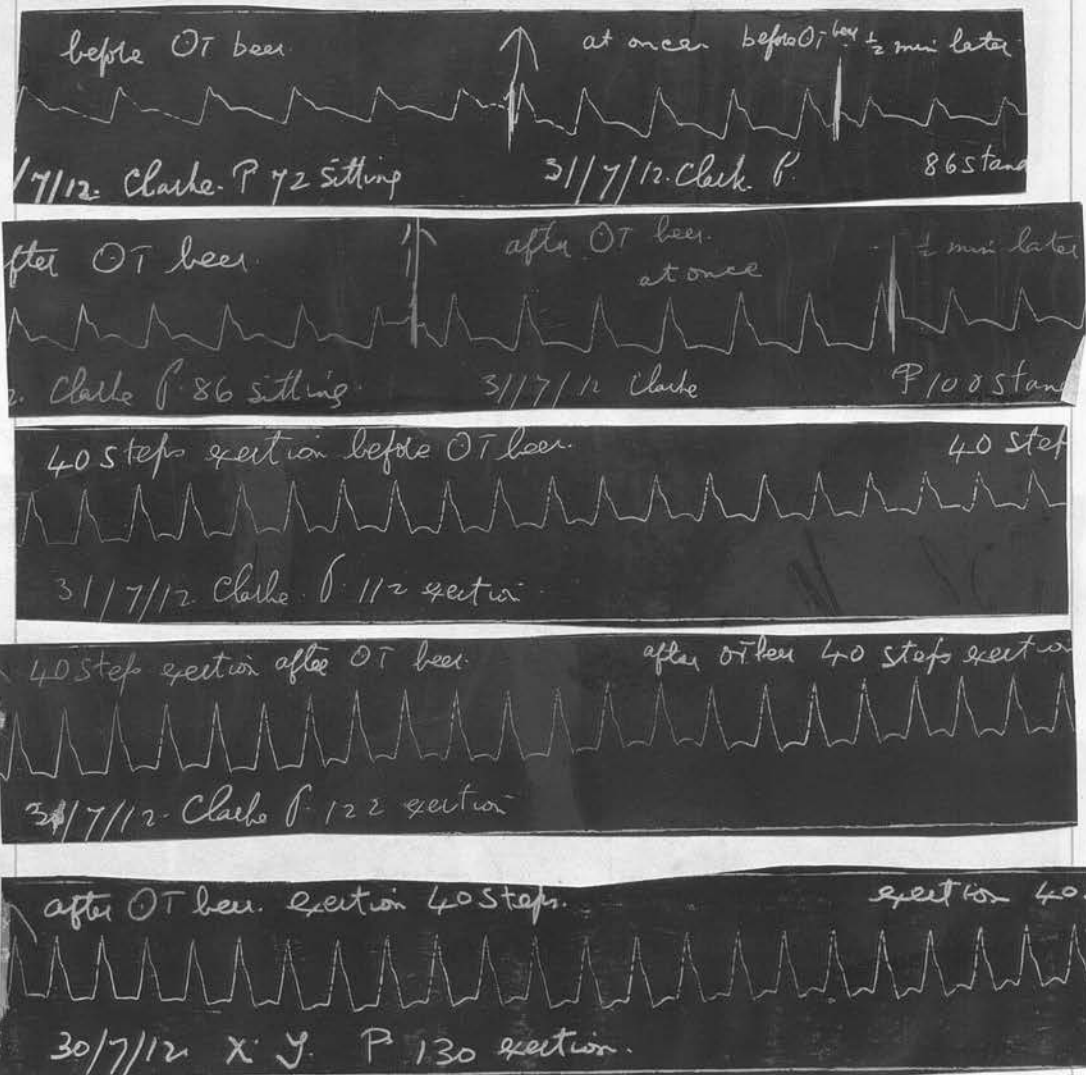 before OT beer. at once before OT beer ½ min later
/7/12. Clarke. P 72 sitting 31/7/12. Clark. P. 86 stand
fter OT beer. after OT beer. ½ min later
at once
2. Clarke P. 86 sitting. 31/7/12 Clarke P 108 stand
40 steps exertion before OT beer. 40 step
31/7/12. Clarke. P. 112 exertion.
40 steps exertion after OT beer. after OT beer 40 steps exertion
31/7/12. Clarke P. 122 exertion
after OT beer. exertion 40 steps. exertion 40
30/7/12. X. Y. P. 130 exertion.